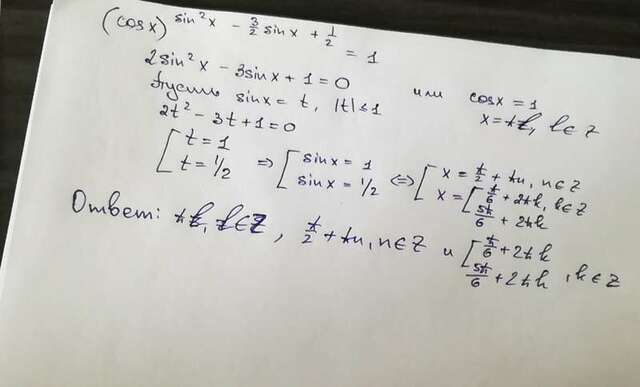 (cosx)^{sin²x - 3/2 sinx + 1/2} = 1
2sin²x - 3sinx + 1 = 0 или cosx = 1
Пусть sinx = t, |t| ≤ 1 x = πk, k ∈ Z
2t² - 3t + 1 = 0
[ t = 1 ; t = 1/2 ⇒ [ sinx = 1 ; sinx = 1/2 ⇔ [ x = π/2 + πn, n ∈ Z ; x = [ π/6 + 2πk ; 5π/6 + 2πk, k ∈ Z
Ответ: πk, k ∈ Z, π/2 + πn, n ∈ Z и [ π/6 + 2πk ; 5π/6 + 2πk, k ∈ Z